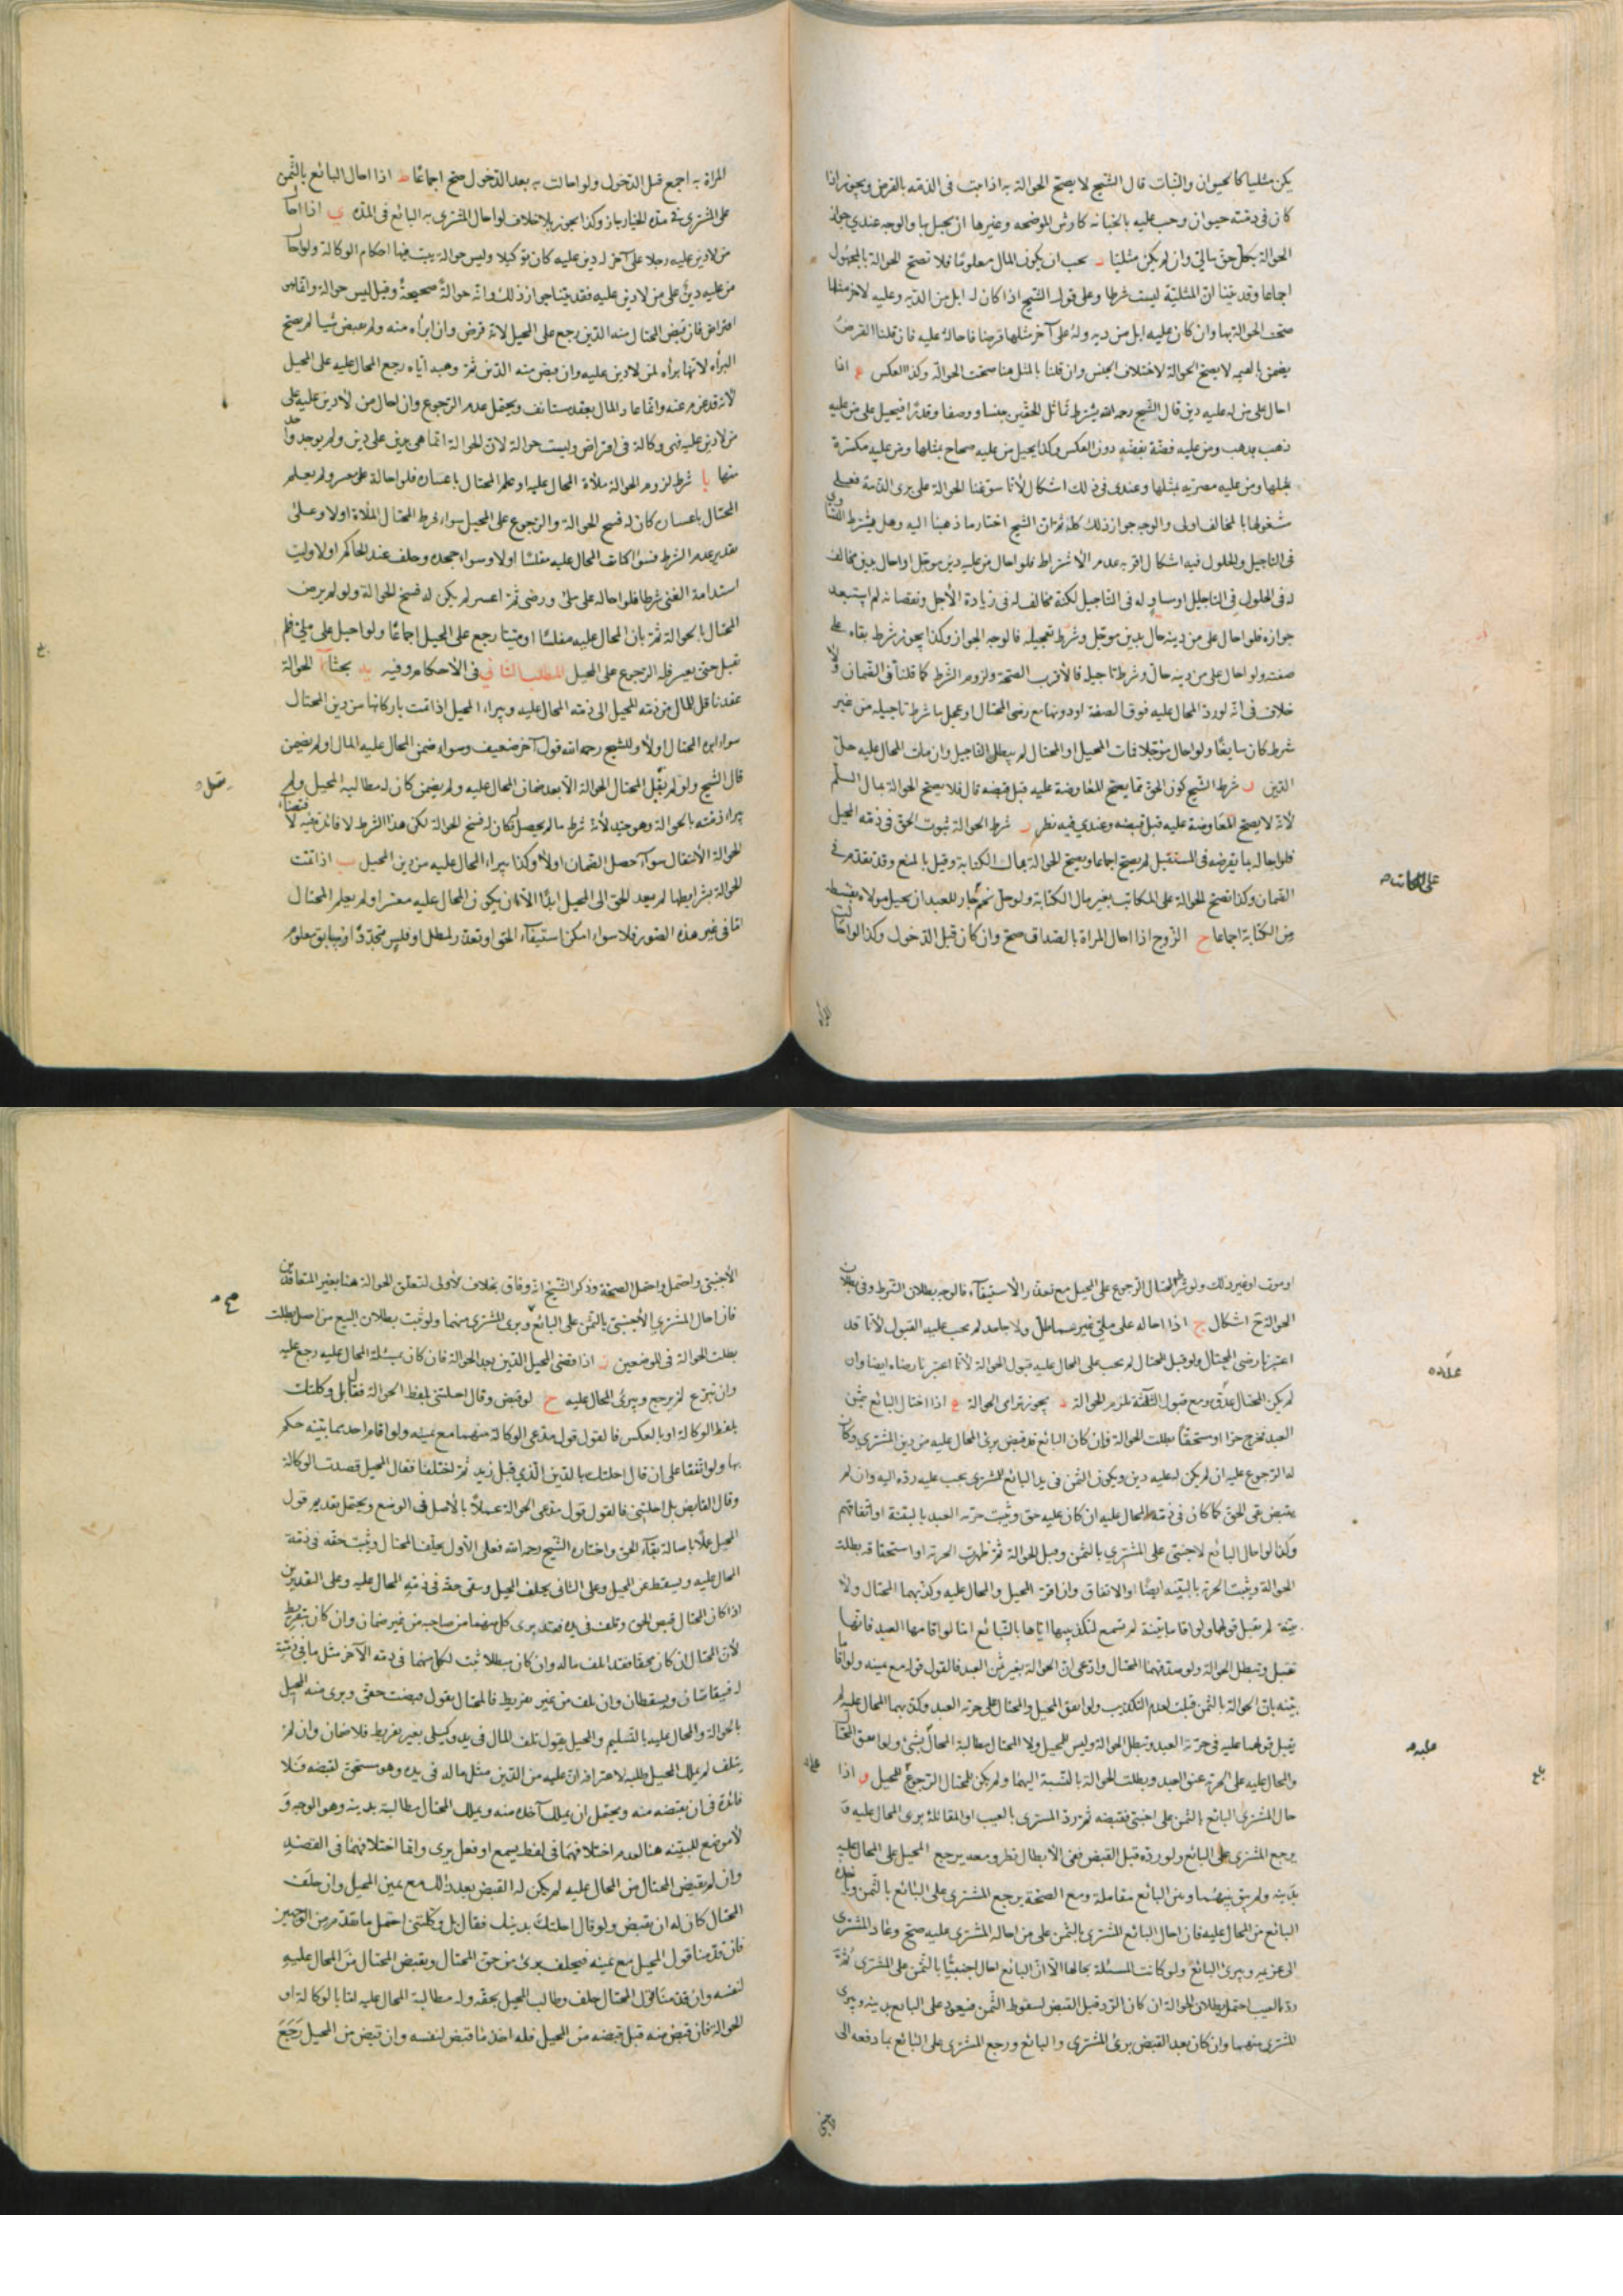 يكن مثليا كالحيوان والثياب قال الشيخ لا يصح الحوالة به اذا ثبت في الذمة بالقرض ويجوز اذا
كان في ذمته حيوان وجب عليه بالجناية كارش الموضحة وغيرها ان يحيل بها والوجه عندي جواز
الحوالة بكل حق مالي وان لم يكن مثليا د يجب ان يكون المال معلوما فلا تصح الحوالة بالمجهول
اجماعا وقد بينا ان المثلية ليست شرطا وعلى قول الشيخ اذا كان له ابل من الدية وعليه لاخر مثلها
صحت الحوالة بها وان كان عليه ابل من دية وله على آخر مثلها قرضا فاحاله عليه فان قلنا القرض
يضمن بالقيمة لا يصح الحوالة لاختلاف الجنس وان قلنا بالمثل هنا صحت الحوالة وكذا العكس اذا
احال على من له عليه دين قال الشيخ رحمه الله يشترط تماثل الحقين جنسا ووصفا وقدرا فيحيل على من عليه
ذهب بذهب ومن عليه فضة بفضة دون العكس وكذا يحيل من عليه صحاح بمثلها ومن عليه مكسرة
بمثلها ومن عليه مصرية بمثلها وعندي في ذلك اشكال لأنا سوغنا الحوالة على برى الذمة فعلى
شغولها بالمخالف اولى والوجه جواز ذلك كله ثم ان الشيخ اختار ما ذهبنا اليه وهل يشترط التساوى
في التاجيل والحلول فيه اشكال اقربه عدم الاشتراط فلو احال من عليه دين مؤجل او احال بدين مخالف
له في الحلول في التاجيل او مساو له في التاجيل لكنه مخالف له في زيادة الأجل ونقصانه لم استبعد
جوازه فلو احال على من دينه حال بدين مؤجل وشرط تعجيله فالوجه الجواز وكذا يجوز شرط بقاه على
صفته ولو احال على من دينه حال وشرط تاجيله فالأقرب الصحة ولزوم الشرط كما قلنا في الضمان ولا
خلاف في انه لو رد المحال عليه فوق الصفة او دونها مع رضى المحتال او عجل ما شرط تاجيله من غير
شرط كان سايغا ولو احال مؤجلا فمات المحيل او المحتال لم يبطل التاجيل وان مات المحال عليه حل
الدين شرط الشيخ كون الحق مما يصح المعاوضة عليه قبل قبضه قال فلا يصح الحوالة بمال السلم
لأنه لا يصح المعاوضة عليه قبل قبضه وعندي فيه نظر ز شرط الحوالة ثبوت الحق في ذمة المحيل
فلو احاله بما يقرضه في المستقبل لم يصح اجماعا ويصح الحوالة بمال الكتابة وقيل بالمنع وقد تقدم في
الضمان وكذا تصح الحوالة على المكاتب بغير مال الكتابة ولو حل نجم جاز للعبد ان يحيل مولاه بقسط
من الكتابة اجماعا ح الزوج اذا احال المراة بالصداق صح وان كان قبل الدخول وكذا لو احالت
على المكاتب
المراة
المراة به اجمع قبل الدخول ولو احالت به بعد الدخول صح اجماعا ط اذا احال البائع بالثمن
على المشتري في مدة الخيار جاز وكذا يجوز بلا خلاف لو احال المشتري به البائع في المدة ي اذا احال
من لا دين عليه رجلا على آخر له دين عليه كان توكيلا وليس حوالة يثبت فيها احكام الوكالة ولو احال
من عليه دين على من لا دين عليه فقد بينا جواز ذلك فانه حوالة صحيحة وقيل ليس حوالة وانما هى
اقتراض فان قبض المحتال منه الدين رجع على المحيل لأنه قرض وان ابراه منه ولم يقبض شيا لم يصح
البراه لانها براه لمن لا دين عليه وان قبض منه الدين ثم وهبه اياه رجع المحال عليه على المحيل
لأنه قد غرم عنه وانما عاد المال بعقد مستانف ويحتمل عدم الرجوع وان احال من لا دين عليه على
من لا دين عليه فهى وكالة في اقتراض وليست حوالة لان الحوالة انما هى بدين على دين ولم يوجد واحد
منهما يا شرط لزوم الحوالة ملأة المحال عليه او علم المحتال باعساره فلو احاله على معسر ولم يعلم
المحتال باعساره كان له فسخ الحوالة والرجوع على المحيل سواء شرط المحتال الملاة اولا وعلى
تقدير عدم الشرط فسوا كانت المحال عليه مفلسا اولا وسواء جحده وحلف عند الحاكم اولا وليت
استدامة الغنى شرطا فلو احاله على ملئ ورضى ثم اعسر لم يكن له فسخ الحوالة ولو لم يرض
المحتال بالحوالة ثم بان المحال عليه مفلسا او ميتا رجع على المحيل اجماعا ولو احيل على ملئ فلم
تقبل حتى يعسر فله الرجوع على المحيل المطلب الثاني في الأحكام وفيه يد بحثا ا الحوالة
عقد ناقل للمال من ذمة المحيل الى ذمة المحال عليه ويبراء المحيل اذا تمت باركانها من دين المحتال
سواء ابراه المحتال اولا وللشيخ رحمه الله قول آخر ضعيف وسواء ضمن المحال عليه المال او لم يضمن
قال الشيخ ولو لم يقبل المحتال الحوالة الا بعد ضمان المحال عليه ولم يضمن كان له مطالبة المحيل ولم
يبراء ذمته بالحوالة وهو جيد لأنه شرط ما لم يحصل فكان له فسخ الحوالة لكن هذا الشرط لا فائدة فيه لاقتضاء
الحوالة الأنتقال سواء حصل الضمان اولا وكذا يبراء المحال عليه من دين المحيل ب اذا تمت
الحوالة بشرايطها لم يعد الحق الى المحيل ابدا الا ان يكون المحال عليه معسرا ولم يعلم المحتال
اما في غير هذه الصور فلا سواء امكن استيفاء الحق او تعذر لمطل او فلس متجدد او سابق معلوم
بلغ
او موت او غير ذلك ولو شرط المحتال الرجوع على المحيل مع تعذر الأستيفاء فالوجه بطلان الشرط وفي بطلان
الحوالة ح اشكال ج اذا احاله على ملئ غير مماطل ولا جاحد لم يجب عليه القبول لأنا قد
اعتبرنا رضى المحتال ولو قبل المحتال لم يجب على المحال عليه قبول الحوالة لأنا اعتبرنا رضاه ايضا وان
لم يكن المحتال عدوه ومع قبول الثلثة تلزم الحوالة د يجوز ترامى الحوالة ه اذا احتال البائع بثمن
العبد فخرج حرا او مستحقا بطلت الحوالة فان كان البائع قد قبض برئ المحال عليه من دين المشتري وكان
له الرجوع عليه ان لم يكن له عليه دين ويكون الثمن في يد البائع للمشتري يجب عليه رده اليه وان لم
يقبض بقى الحق كما كان في ذمة المحال عليه ان كان عليه حق ويثبت حرية العبد بالبينة او اتفاقهم
وكذا لو احال البائع لاجنبي على المشتري بالثمن وقبل الحوالة ثم ظهرت الحرية او استحقاقه بطلت
الحوالة ويثبت الحرية بالبينة ايضا او الاتفاق وان اقر المحيل والمحال عليه وكذبهما المحتال ولا
بينة لم تقبل قولهما ولو اقاما بينة لم تسمع لتكذيبهما اياها بالتبائع اما لو اقامها العبد فانها
تقبل وتبطل الحوالة ولو صدقهما المحتال وادعى ان الحوالة بغير ثمن العبد فالقول قوله مع يمينه ولو اقاما
بينة بان الحوالة بالثمن قبلت لعدم التكذيب ولو اتفق المحيل والمحتال على حرية العبد وكذبهما المحال عليه لم
يقبل قولهما عليه في حرية العبد وتبطل الحوالة وليس للمحيل ولا للمحتال مطالبة المحال بشئ ولو اتفق المحتال
والمحال عليه على الحرية عتق العبد وبطلت الحوالة بالنسبة اليهما ولم يكن للمحتال الرجوع للمحيل و اذا
حال المشتري البائع بالثمن على اجنبي فقبضه ثم رد المشتري بالعيب او المقائلة برئ المحال عليه و
يرجع المشتري على البائع ولو رده قبل القبض ففي الأبطال نظر ومعه يرجع المحيل على المحال عليه
بدينه ولم يبق بينهما وبين البائع معاملة ومع الصحة يرجع المشتري على البائع بالثمن وياخذه
البائع من المحال عليه فان احال البائع المشتري بالثمن على من احاله المشتري عليه صح وعاد المشتري
الى غريمه ويبرئ البائع ولو كانت المسئلة بحالها الا ان البائع احال اجنبيا بالثمن على المشتري ثم
رده بالعيب احتمل بطلان الحوالة ان كان الرد قبل القبض لسقوط الثمن فيعود على البائع بدينه ويبرئ
المشتري منهما وان كان بعد القبض برئ المشتري والبائع ورجع المشتري على البائع بما دفعه الى
عليه
بلغ
الأجنبي واحتمل واحتمل الصحة وذكر الشيخ انه وفاق بخلاف الأولى لتعلق الحوالة هنا بغير المتعاقدين
فان احال المشتري الأجنبي بالثمن على البائع وبرى المشتري منهما ولو ثبت بطلان البيع من اصله بطلت
بطلت الحوالة في الموضعين ز اذا قضى المحيل الدين بعد الحوالة فان كان بمسئلة المحال عليه رجع عليه
وان تبرع لم يرجع ويبرئ المحال عليه ح لو قبض وقال احلتني بلفظ الحوالة فقال بل وكلتك
بلفظ الوكالة او بالعكس فالقول قول مدعى الوكالة منهما مع يمينه ولو اقام احدهما بينة حكم
بها ولو اتفقا على ان قال احلتك بالدين الذي قبل زيد ثم اختلفا فقال المحيل قصدت الوكالة
وقال القابض بل احلتني فالقول قول مدعى الحوالة عملا بالأصل في الوضع ويحتمل تقديم قول
المحيل عملا باصالة بقاء الحق واختاره الشيخ رحمه الله فعلى الأول يحلف المحتال ويثبت حقه في ذمة
المحال عليه ويسقط عن المحيل وعلى الثاني يحلف المحيل ويبقى حقه في ذمة المحال عليه وعلى التقديرين
اذا كان المحتال قبض الحق وتلف في يده فقد برى كل منهما من صاحبه من غير ضمان وان كان بتفريط
لأن المحتال ان كان محقا فقد اتلف ماله وان كان مبطلا ثبت لكل منهما في ذمة الآخر مثل ما في ذمته
له فيتقاصان ويسقطان وان تلف من غير تفريط فالمحتال يقول قبضت حقي وبرى منه المحيل
بالحوالة والمحال عليه بالتسليم والمحيل يقول تلف المال في يد وكيلى بغير تفريط فلا ضمان وان لم
يتلف لم يملك المحيل طلبه لاعترافه ان عليه من الدين مثل ماله في يده وهو مستحق لقبضه فلا
فائدة في ان يقبضه منه ويحتمل ان يملك اخذه منه ويملك المحتال مطالبته بدينه وهو الوجه و
لا موضع للبينة هنا لعدم اختلافهما في لفظ يسمع او فعل يرى وانما اختلافهما في القصد
وان لم يقبض المحتال من المحال عليه لم يكن له القبض بعد ذلك مع يمين المحيل وان حلف
المحتال كان له ان يقبض ولو قال احلتك بدينك فقال بل وكلتني احتمل ما تقدم من الوجهين
فان قدمنا قول المحيل مع يمينه فيحلف ويبرئ من حق المحتال ويقبض المحتال من المحال عليه
لنفسه وان قدمنا قول المحتال حلف وطالب المحيل بحقه وله مطالبة المحال عليه اما بالوكالة او
الحوالة فان قبض منه قبل قبضه من المحيل فله اخذ ما قبض لنفسه وان قبض من المحيل رجع